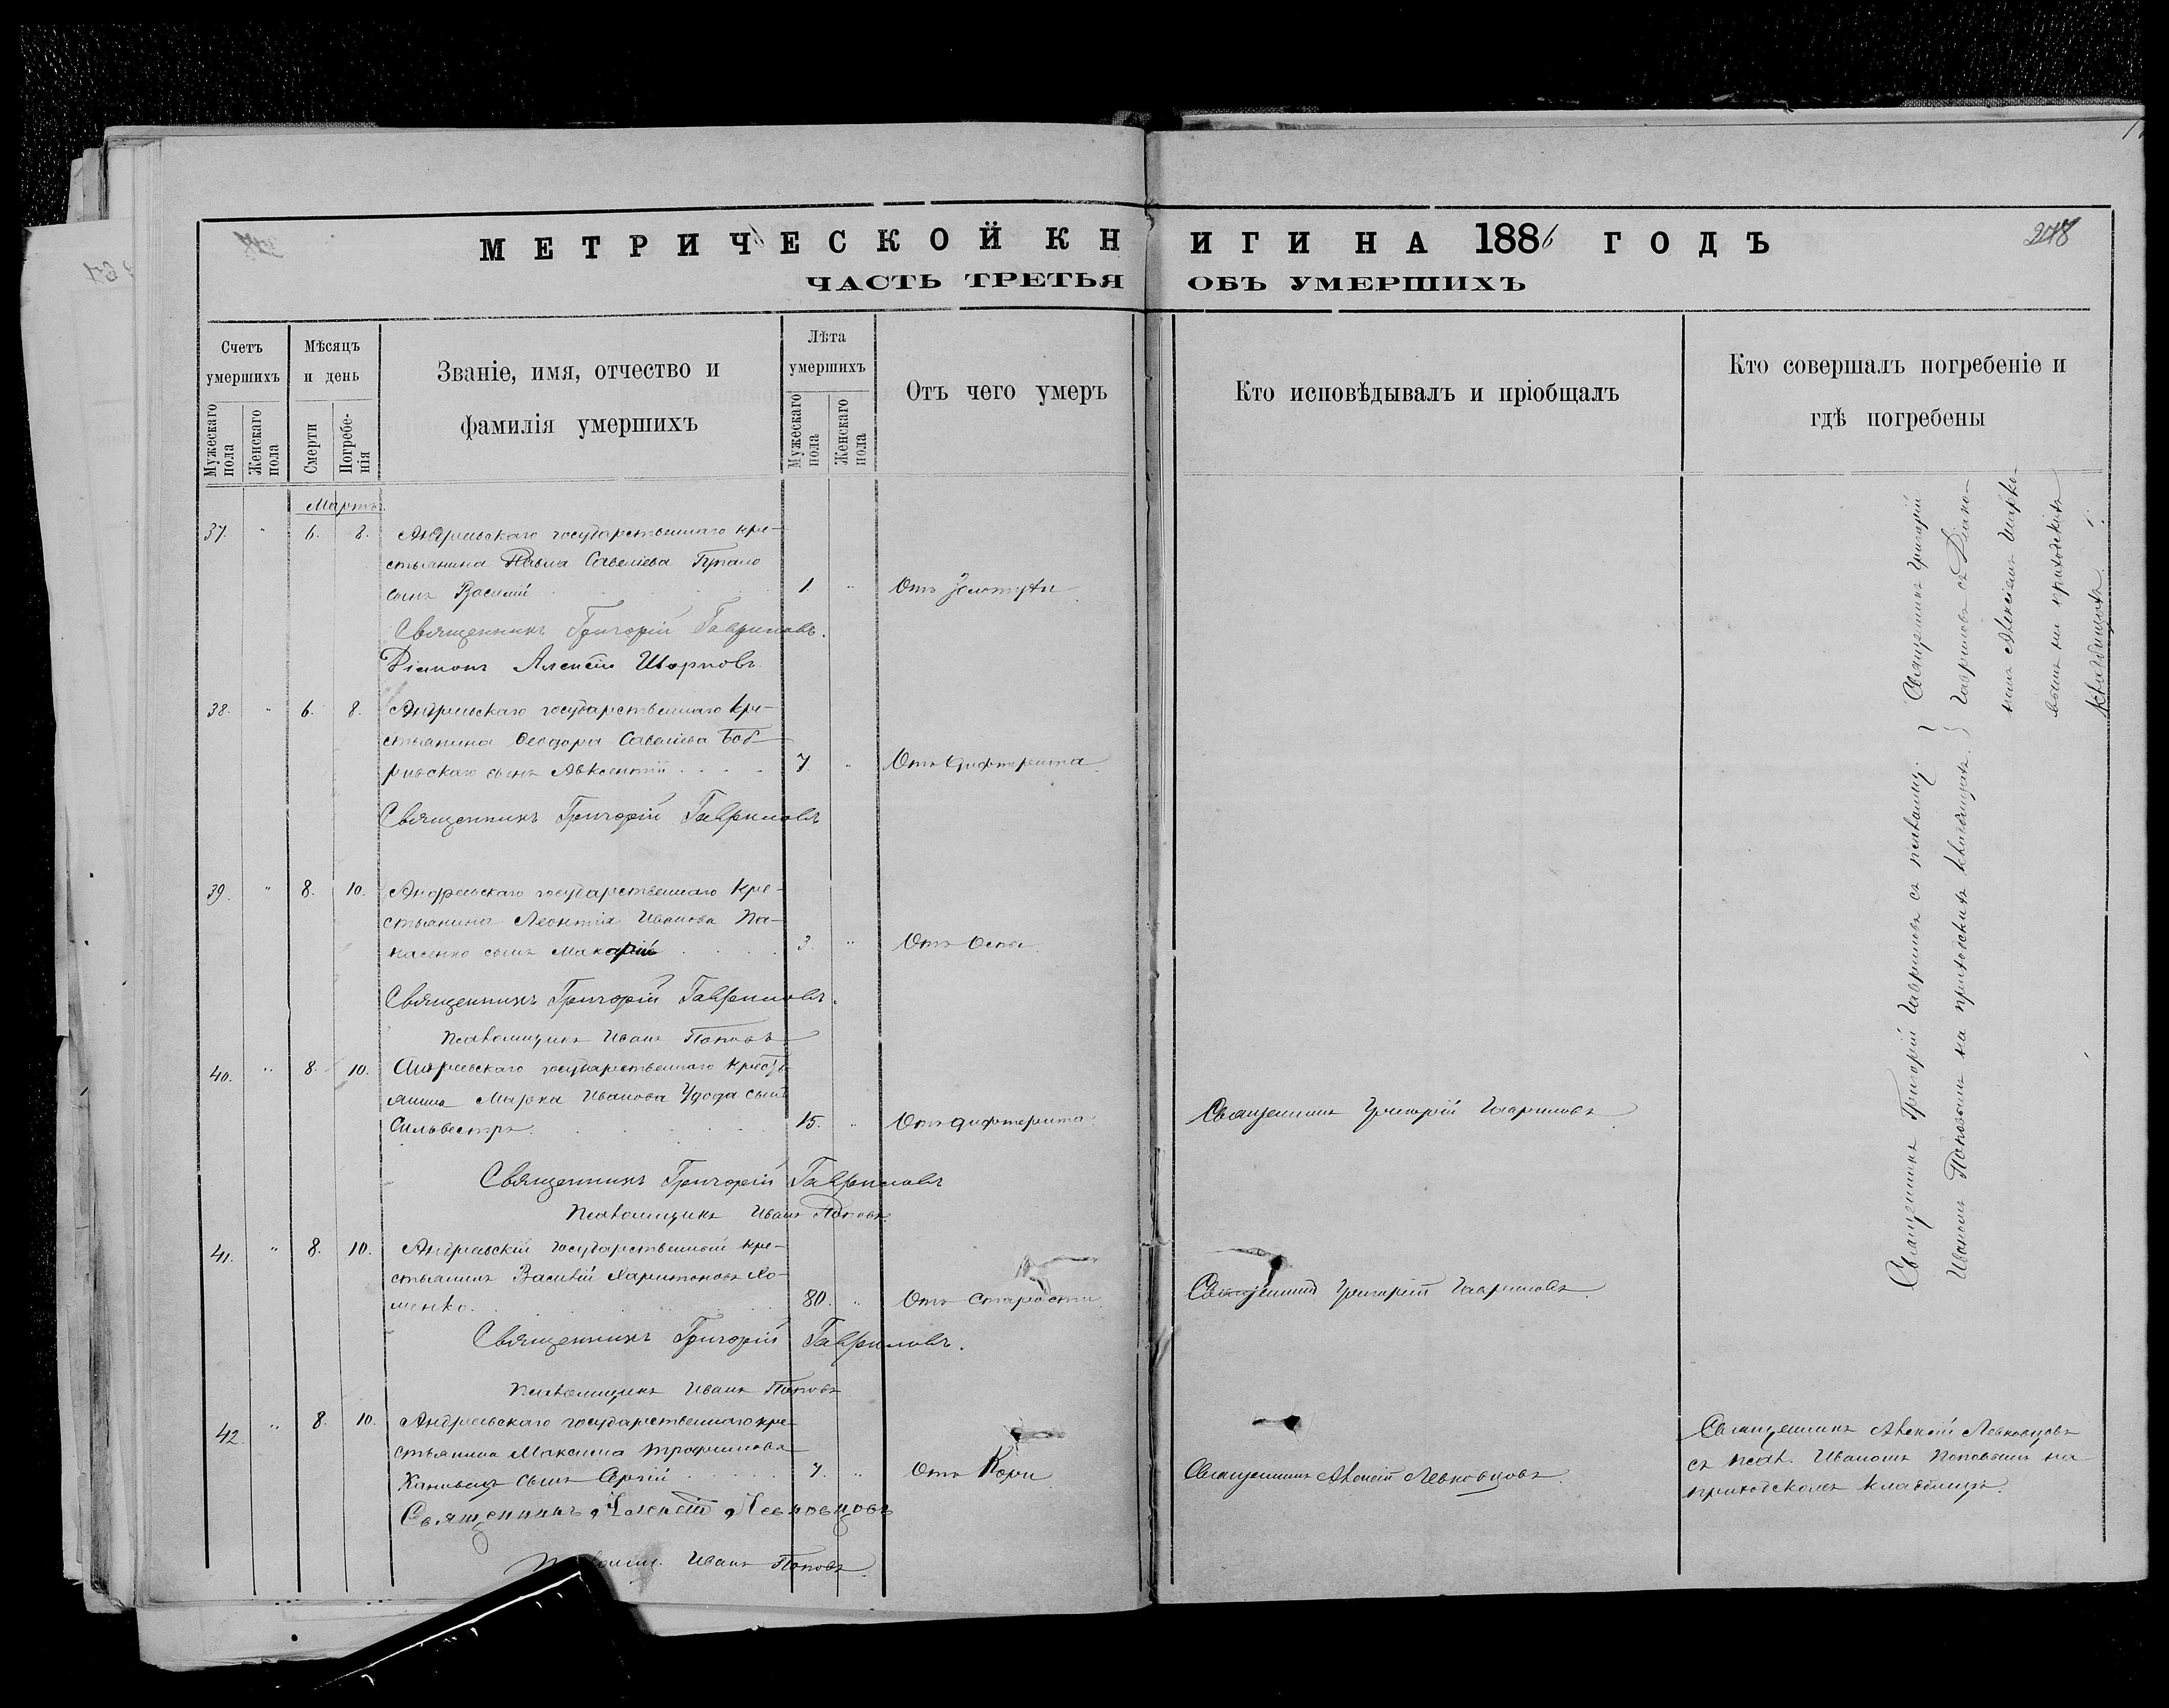 МЕТРИЧЕСКОЙ КНИГИ НА 1886 ГОДЪ
ЧАСТЬ ТРЕТЬЯ ОБЪ УМЕРШИХЪ
218
Счетъ умершихъ
Мужескаго пола
Женскаго пола
Мѣсяцъ и день
Смерти
Погребенія
Званіе, имя, отчество и
фамилія умершихъ
Лѣта умершихъ
Мужескаго пола
Женскаго пола
Отъ чего умеръ
Кто исповѣдывалъ и пріобщалъ
Кто совершалъ погребеніе и
гдѣ погребены
Мартъ.
37. " 6. 8. Андреевскаго государственнаго кре-
стьянина Павла Савеліева
сынъ Василій 1. "
Священникъ Григорій Гавриловъ.
Діаконъ Алексѣй
38. " 6. 8. Андреевскаго государственнаго кре-
стьянина Ѳеодора Савеліева Боб-
сынъ Авксентій 7. " Отъ дифтерита.
Священникъ Григорій Гавриловъ
39. " 8. 10. Андреевскаго государственнаго кре-
стьянина Леонтія Иванова Па-
насенко сынъ Макарій 3. " Отъ оспы.
Священникъ Григорій Гавриловъ.
Псаломщикъ Иванъ Поповъ
40. " 8. 10. Андреевскаго государственнаго кресть-
янина Марка Иванова Удода сынъ
Сильвестръ. 15. " Отъ дифтерита. Священникъ Григорій Гавриловъ.
Священникъ Григорій Гавриловъ
Псаломщикъ Иванъ Поповъ.
41. " 8. 10. Андреевскій государственный кре-
стьянинъ Василій Харитоновъ Хо-
менко. 80. " Отъ старости. Священникъ Григорій Гавриловъ.
Священникъ Григорій Гавриловъ.
Псаломщикъ Иванъ Поповъ
42. " 8. 10. Андреевскаго государственнаго кре-
стьянина Максима Трофимова
сынъ Сергій 7. " Отъ Кори Священникъ Алексій Левковцовъ.
Священникъ Алексѣй Левковцовъ
Иванъ Поповъ.
Священникъ Григорій
Гавриловъ съ Діако-
номъ Алексіемъ
на приходскомъ
кладбищѣ.
Священникъ Григорій Гавриловъ съ псаломщ.
Иваномъ Поповымъ на приходскомъ кладбищѣ.
Священникъ Алексій Левковцовъ
съ псал. Иваномъ Поповымъ на
приходскомъ кладбищѣ.